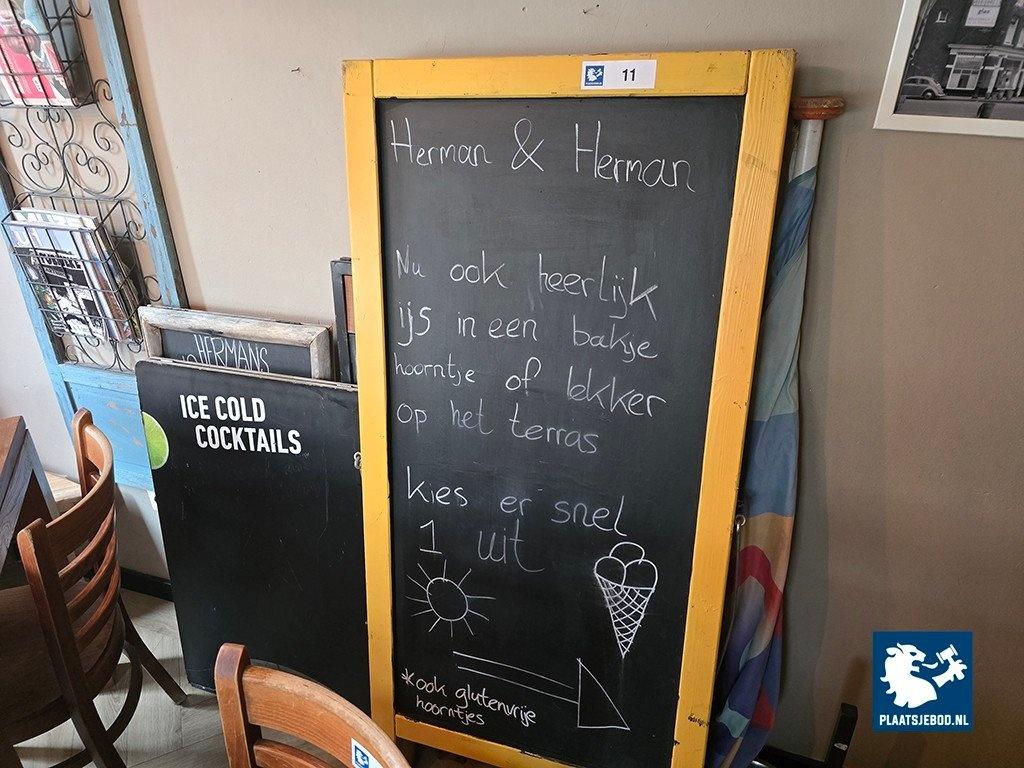 11
Herman & Herman
Nu ook heerlijk
ijs in een bakje
hoorntje of lekker
op het terras
kies er snel
1 uit
*ook glutenvrije
hoorntjes
HERMANS
ICE COLD
COCKTAILS
PLAATSJEBOD.NL